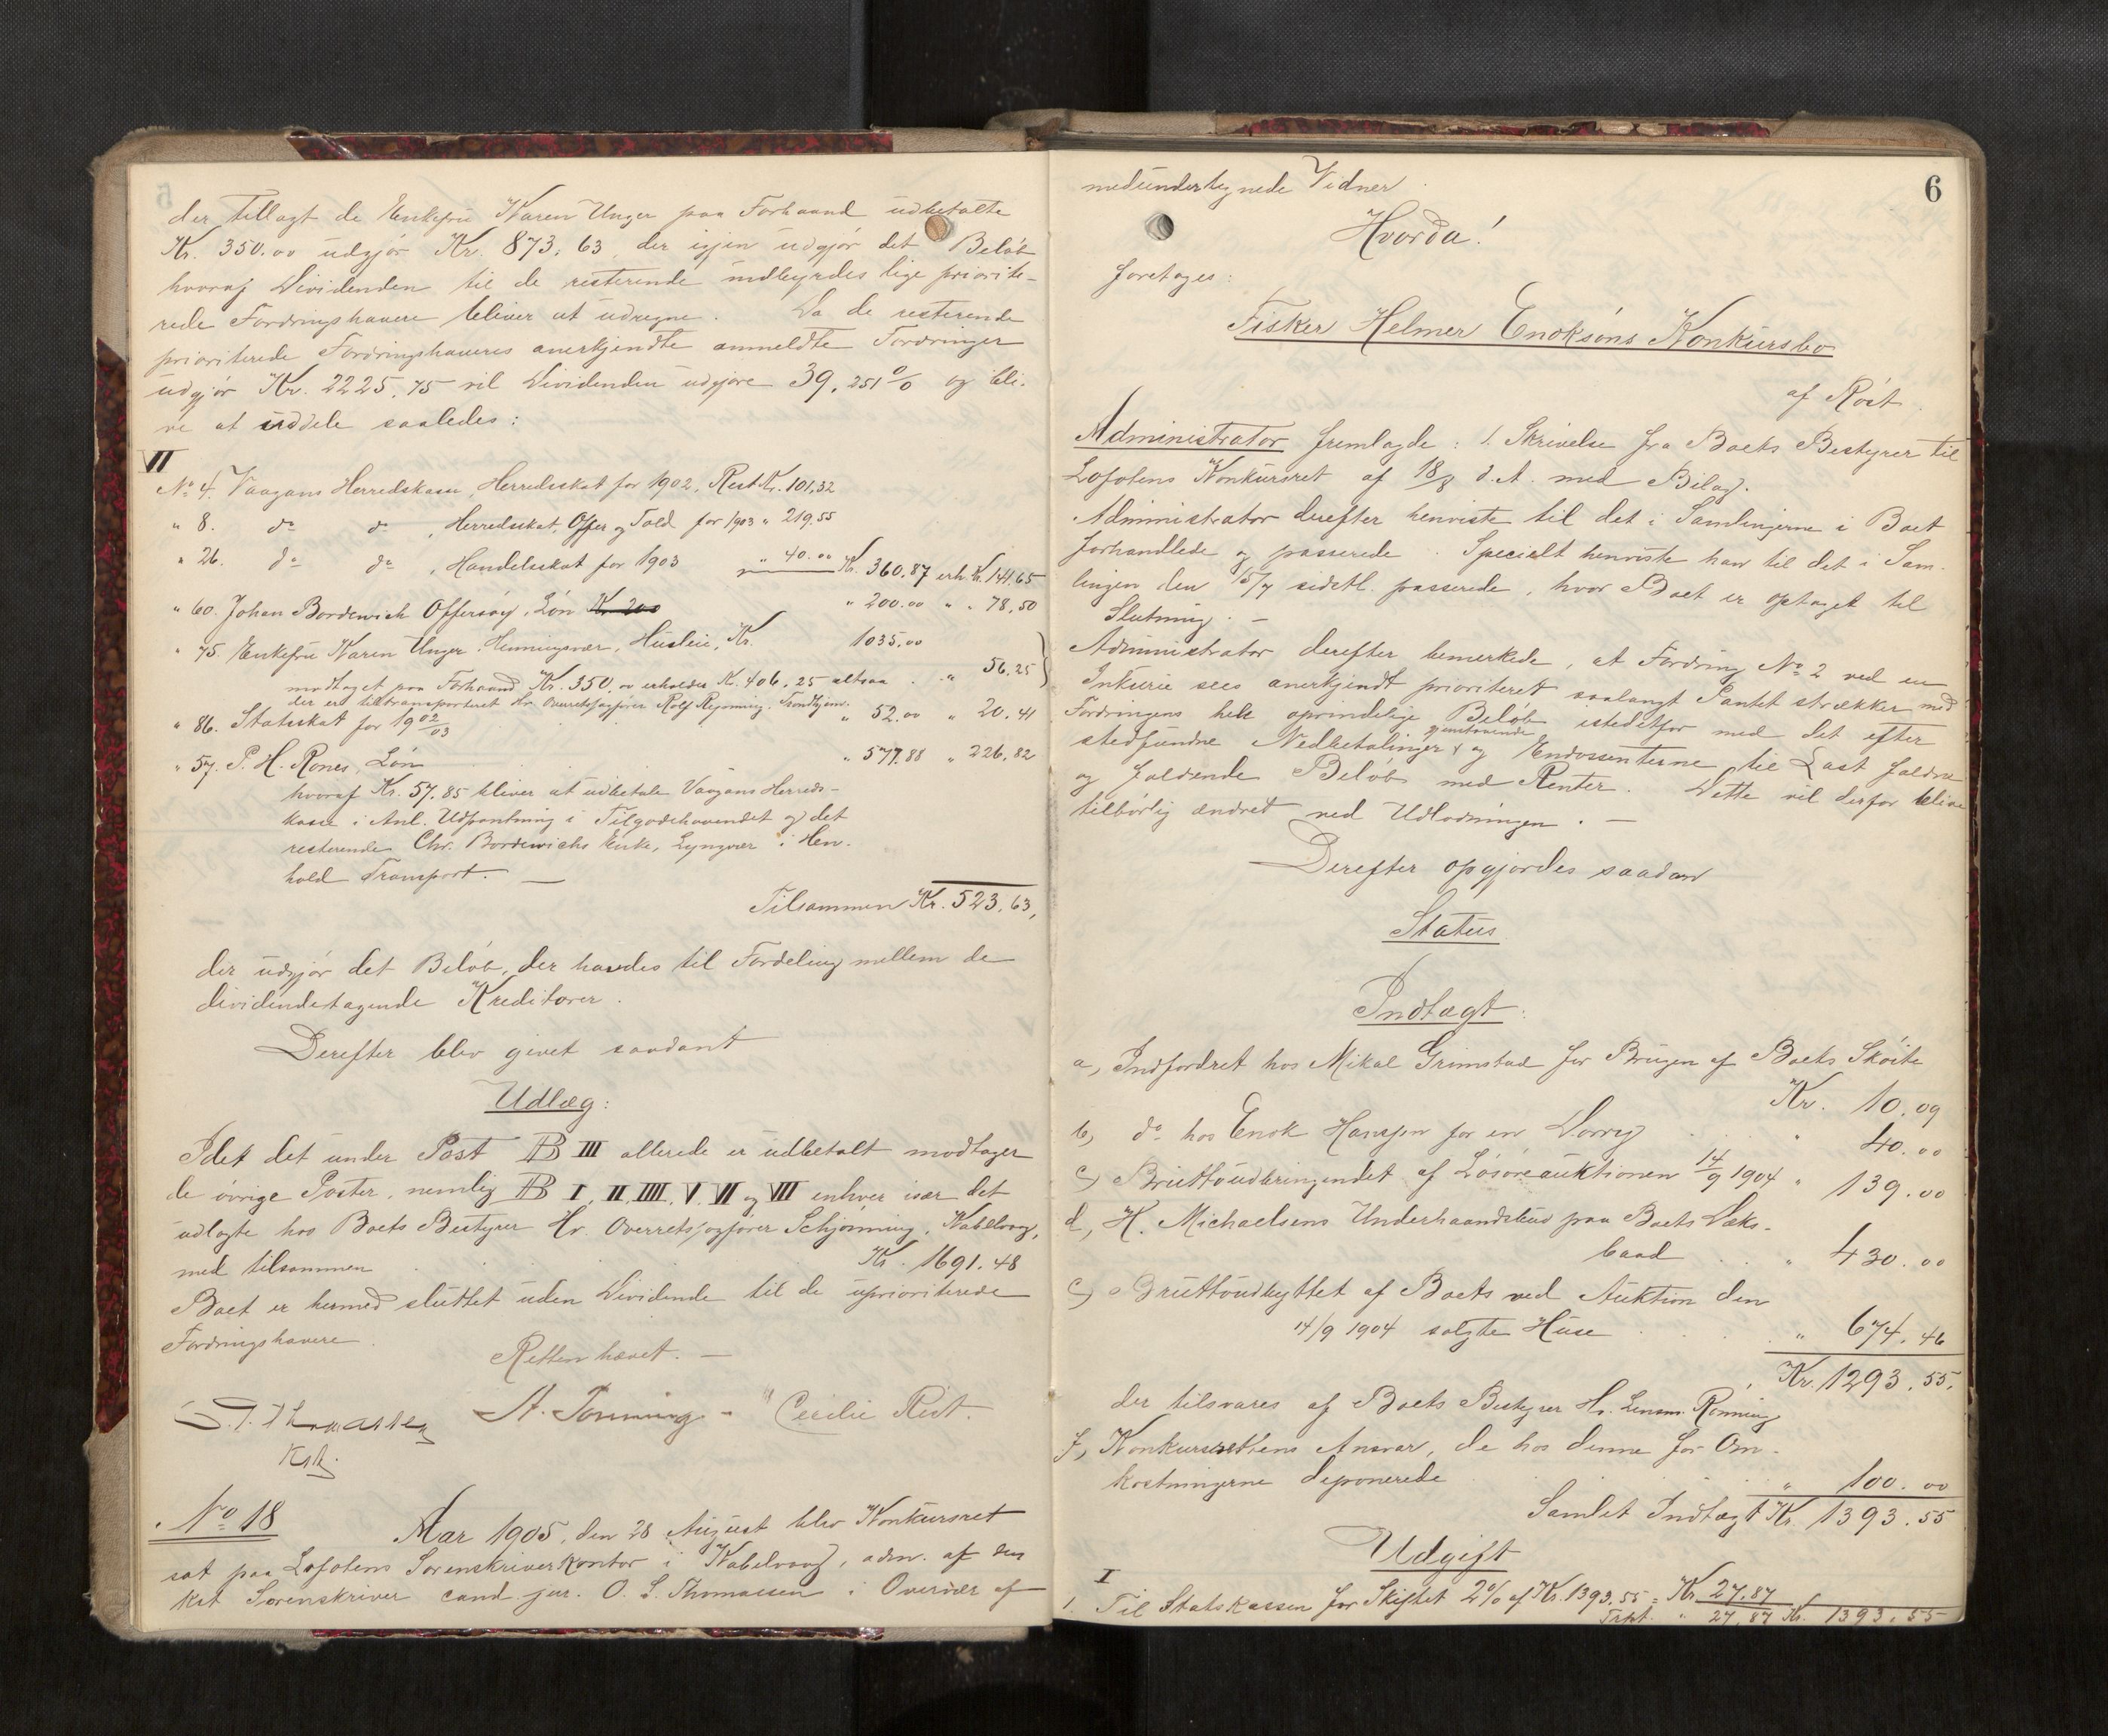 der tillagt de Enkefru Karen Unger paa Forhaand udbetalte
Kr. 350.00 udgjør Kr. 873,63, der igjen udgjør det Beløb
hvoraf Dividenden til de resterende indbyrdes lige priorite-
rede Fordringshavere bliver at udregne. Da de resterende
prioriterede Fordringshaveres anerkjendte anmeldte Fordringer
udgjør Kr. 2225,75 vil Dividenden udgjøre 39,251% og bli-
ve at uddele saaledes:
VII
No 4. Vaagans Herredskasse, Herredsskat for 1902, Rest Kr. 101,32
" 8. do do, Herredsskat, Offer og Told for 1903 " 219,55
" 26. do do, Handelsskat for 1903 " 40.00 Kr. 360,87 erh. Kr. 141,65
" 60. Johan Bordewich Offersøy, Løn Kr. 200 " 200.00 " " 78,50
" 75. Enkefru Karen Unger, Henningsvær, Husleie, Kr. 1035.00
modtaget paa Forhaand Kr. 350,00 erholder Kr. 406,25 altsaa . " 56,25
der er tiltransporteret Hr. Overretssagfører Rolf Thjem.
" 86. Statsskat for 1902/03 " 52.00 " 20.41
" 57. P. H. Rones, Løn " 577.88 " 226,82
hvoraf Kr. 57,85 bliver at udbetale Vaagans Herreds-
kasse i Anl. Udpantning i Tilgodehavendet og det
resterende Chr. Bordewichs Enke, Lyngvær i Hen-
hold Transport. —
Tilsammen Kr. 523,63,
der udgjør det Beløb, der havdes til Fordeling mellem de
dividendetagende Kreditorer.
Derefter blev givet saadant
Udlæg:
Idet det under Post B III allerede er udbetalt modtager
de øvrige Poster, nemlig B I, II, IIII, V, VI og VII enhver især det
udlagte hos Boets Bestyrer Hr. Overretssagfører Schjønning, Kabelvaag,
med tilsammen Kr. 1691.48
Boet er hermed sluttet uden Dividende til de uprioriterede
Fordringshavere.
Retten hævet. —
O. S. Thomassen A. Tønning - Cecilie Rist.
Kst.
No 18
Aar 1905, den 28 August blev Konkursret
sat paa Lofotens Sorenskriverkontor i Kabelvaag, adm. af den
kst Sorenskriver cand. jur. O. S. Thomassen i Overvær af
6
medundertegnede Vidner.
Hvorda!
foretoges:
Fisker Helmer Enoksøns Konkursbo
af Røst.
Administrator fremlagde: 1. Skrivelse fra Boets Bestyrer til
Lofotens Konkursret af 18/8 d.A. med Bilag.
Administrator derefter henviste til det i Samlingerne i Boet
forhandlede og passerede. Specielt henviste han til det i Sam-
lingen den 15/7 sidstl. passerede, hvor Boet er optaget til
Slutning. —
Administrator derefter bemerkede, at Fordring No 2 ved en
Inkurie sees anerkjendt prioriteret saalangt Pantet strækker med
Fordringens hele oprindelige Beløb istedetfor med det efter
stedfundne Nedbetalinger gjenstaaende og Endossenterne til Last faldne
og faldende Beløb med Renter. Dette vil derfor blive
tilbørlig ændret ved Udlodningen. —
Derefter opgjordes saadan
Status
Indtægt:
a, Indfordret hos Mikal Grimstad for Brugen af Boets Skøite
Kr. 10.09
b, do hos Enok Hansen for en Dorry " 40.00
c, Bruttoudbringendet af Løsøreauktionen 14/9 1904 " 139.00
d, H. Michaelsens Underhaandsbud paa Boets Dæks-
baad " 430.00
e, Bruttoudbyttet af Boets ved Auktion den
14/9 1904 solgte Huse . " 674,46
Kr. 1293,55,
der tilsvares af Boets Bestyrer Hr. Lensm. Rønning
f, Konkursrettens Ansvar, de hos denne for Om-
kostningerne deponerede " 100.00
Samlet Indtægt Kr. 1393.55
Udgift
I
1. Til Statskassen for Skiftet 2% af Kr. 1393,55 = Kr. 27.87
Trspt. " 27,87 Kr. 1393,55